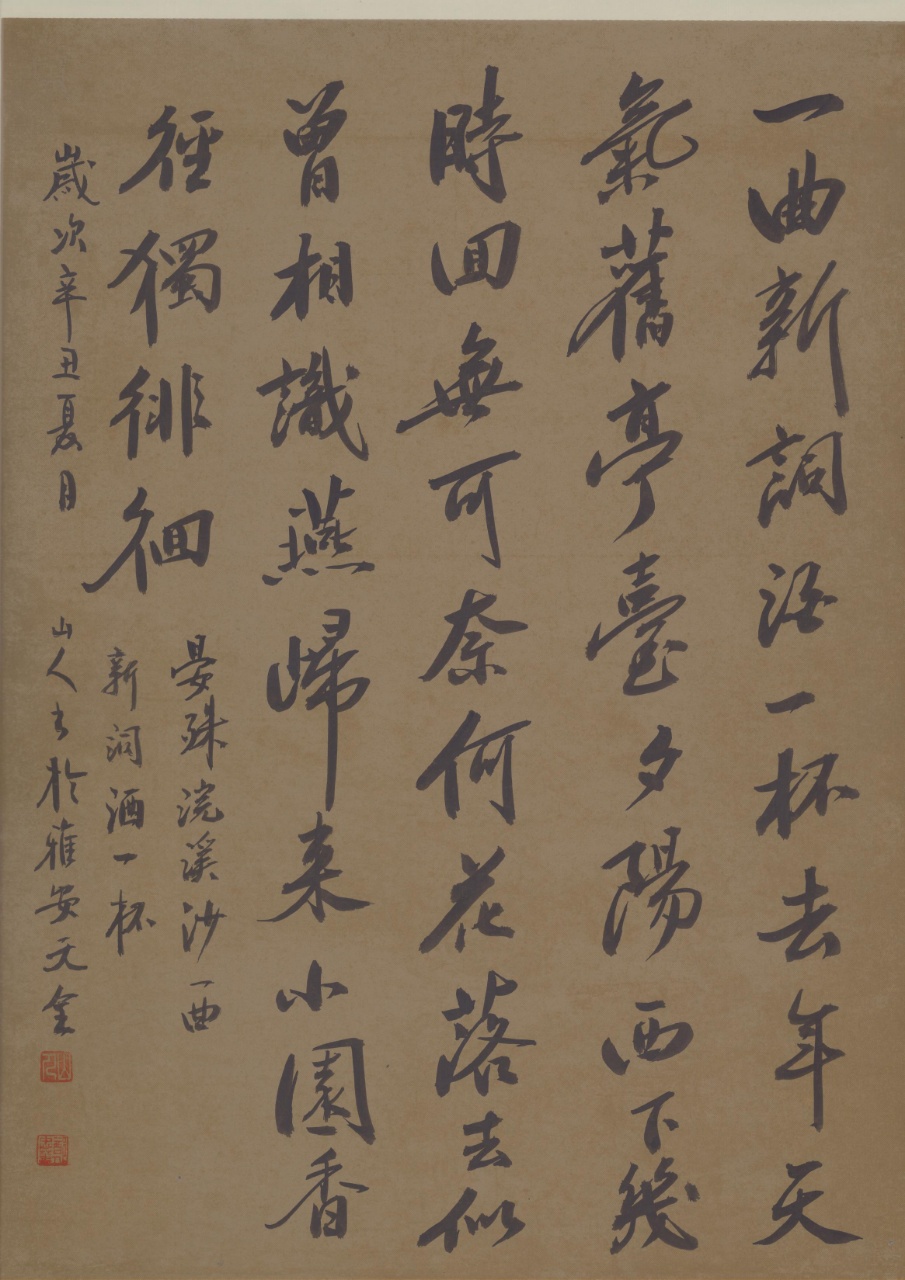 一曲新詞酒一杯去年天
氣舊亭臺夕陽西下幾
時回無可奈何花落去似
曾相識燕歸来小園香
徑獨徘徊
晏殊浣溪沙一曲
新词酒一杯
歲次辛丑夏月
山人书於雅安天全